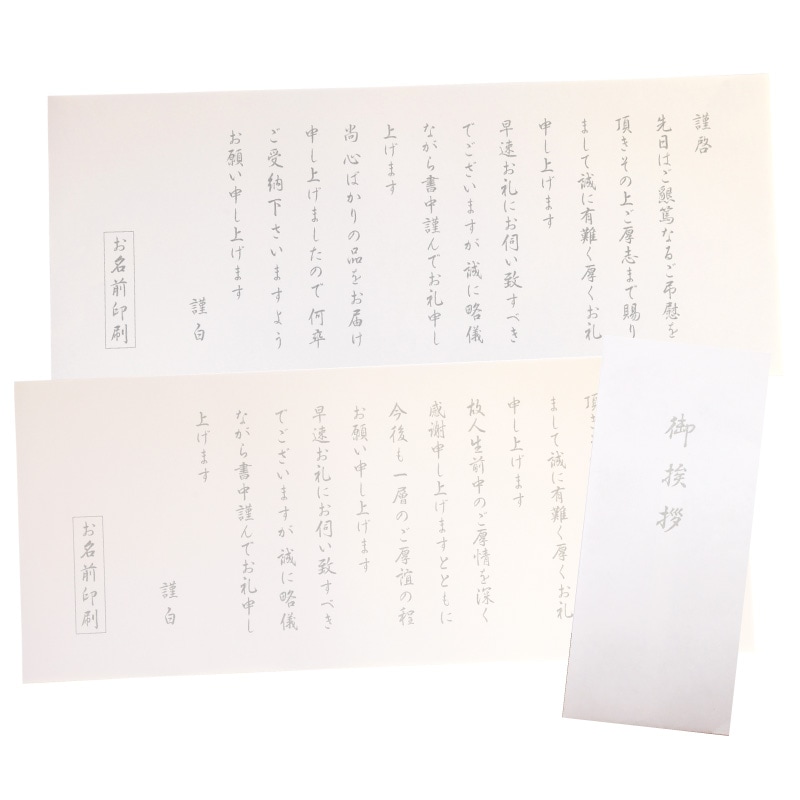 謹啓
先日はご懇篤なるご弔慰を
頂きその上ご厚志まで賜り
まして誠に有難く厚くお礼
申し上げます
早速お礼にお伺い致すべき
でございますが誠に略儀
ながら書中謹んでお礼申し
上げます
尚心ばかりの品をお届け
申し上げましたので何卒
ご受納下さいますよう
お願い申し上げます
謹白
お名前印刷
頂き
まして誠に有難く厚くお礼
申し上げます
故人生前中のご厚情を深く
感謝申し上げますとともに
今後も一層のご厚誼の程
お願い申し上げます
早速お礼にお伺い致すべき
でございますが誠に略儀
ながら書中謹んでお礼申し
上げます
謹白
お名前印刷
御挨拶